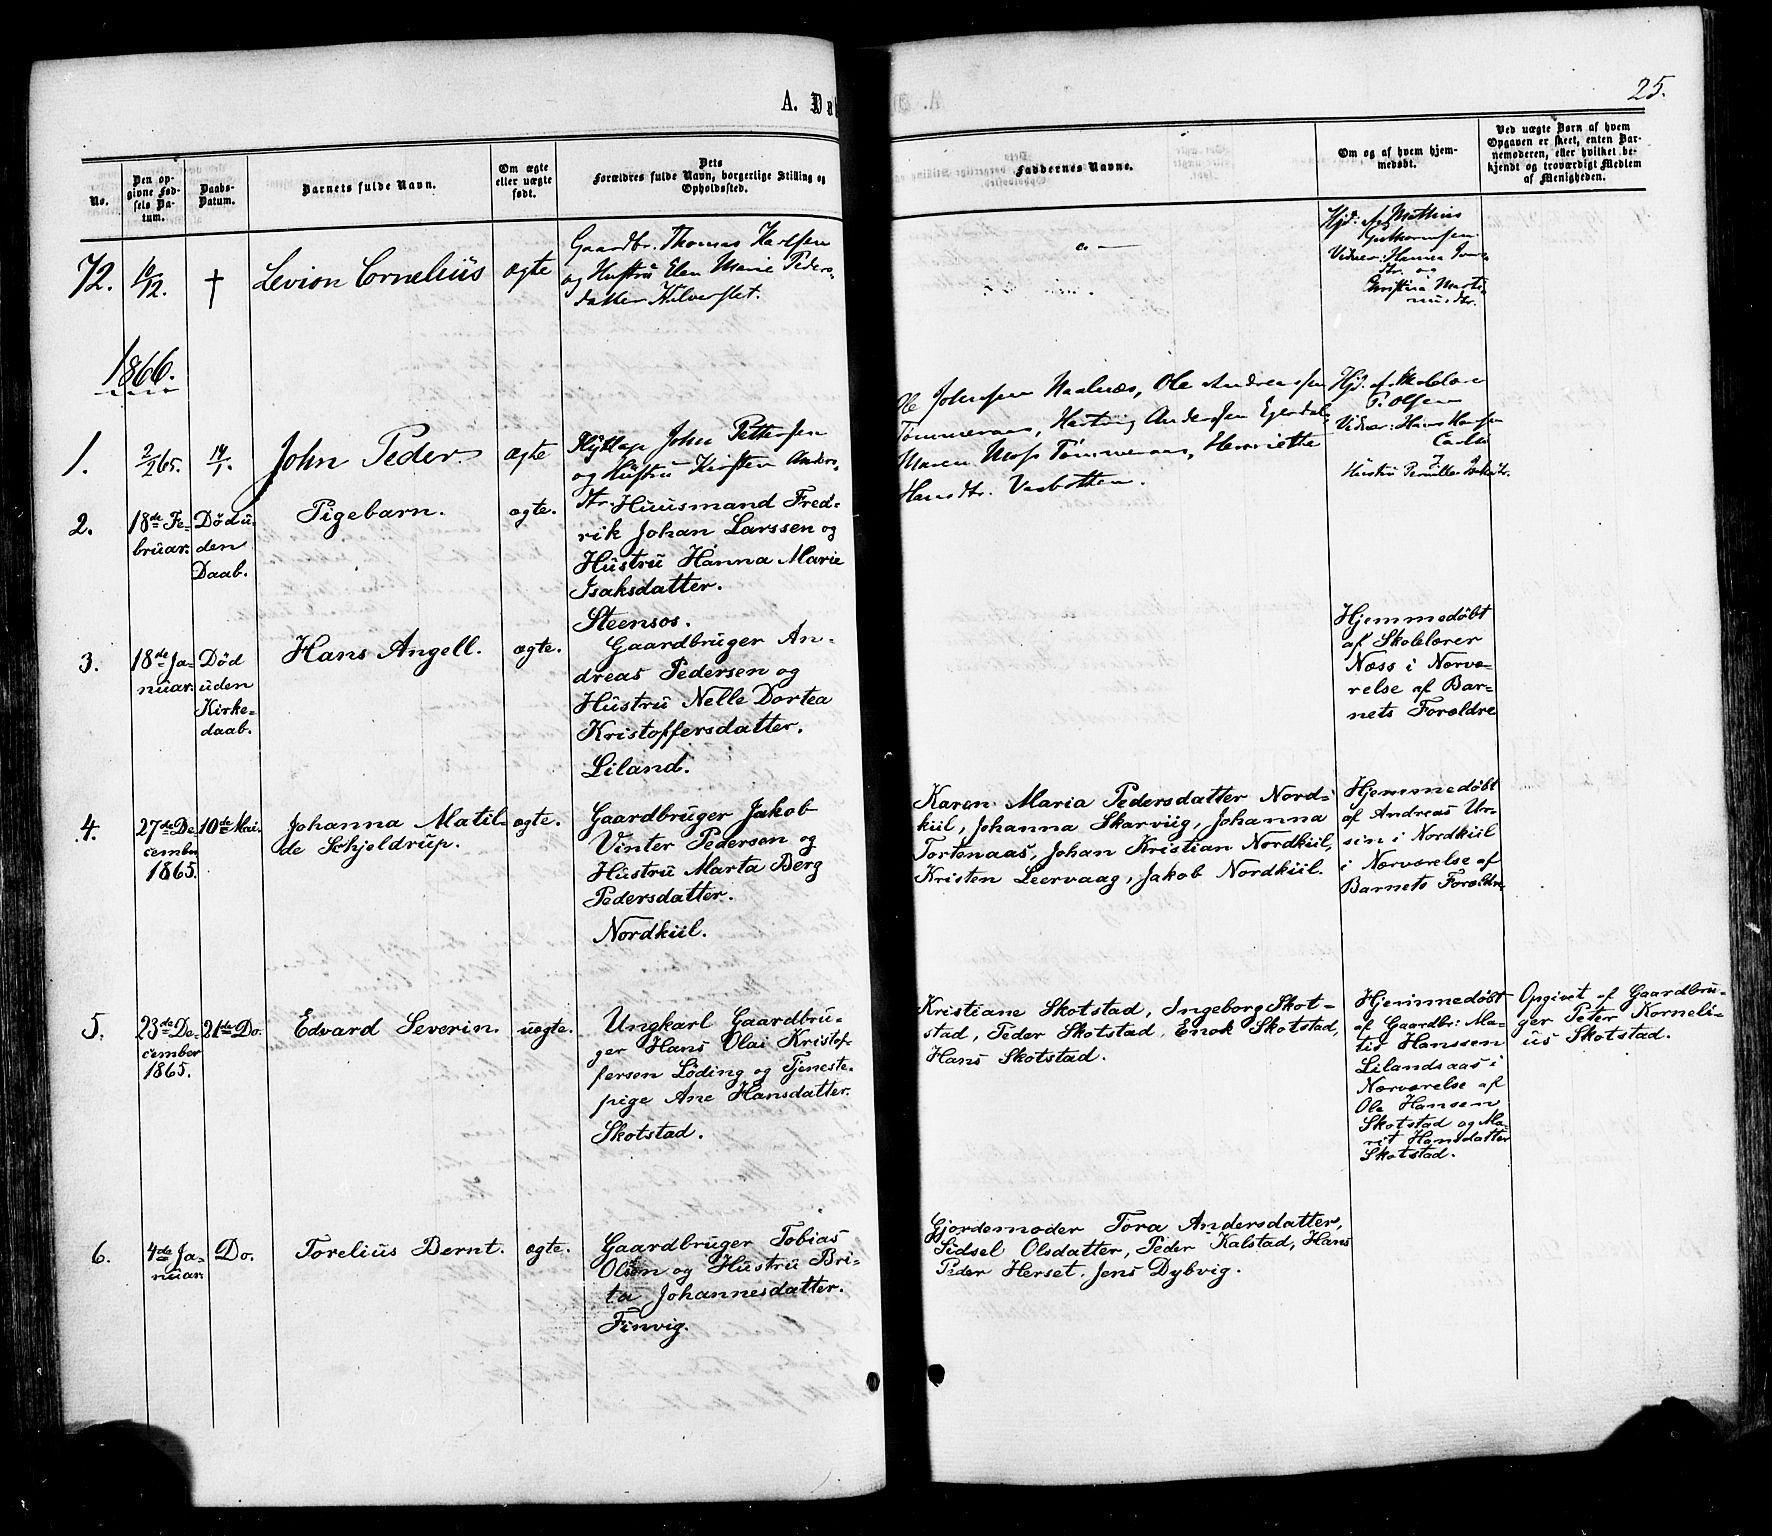 A. Dø
25.
No.
Den op-
givne Fød-
sels Da-
tum.
Daabs-
Datum.
Barnets fulde Navn.
Om ægte
eller uægte
født.
Dets
Forældres fulde Navn, borgerlige Stilling og
Opholdssted.
Faddernes Navne.
Om og af hvem hjem-
medøbt.
Ved uægte Børn af hvem
Opgaven er skeet, enten Bar-
nemoderen, eller hvilket be-
kjendt og troværdigt Medlem
af Menigheden.
72.
10/12.
†
Levion Cornelius
ægte
Gaardbr. Thomas
og Hustru Elen Marie Peders-
datter
Hjd: af Mathias
Vidner: Hanna
dtr. og
Christina
1866.
1.
2/2 65.
14/1.
John Peder.
ægte
John Pettersen
og Hustru Kirsten Anders-
dtr.
Johnsen Naalnæs, Ole Andreassen
Tømmeraas, Hartvig Andersen
Maren Moss Tømmeraas, Henriette
Hansdtr. Vasbotten.
Hjd. af Skolelærer
P. Olsen
Vidner: Hans Hansen
Hustru Pernille
2.
18de Fe-
bruar.
Død u-
den
Daab.
Pigebarn.
ægte.
Huusmand Fred-
rik Johan Larssen og
Hustru Hanna Marie
Isaksdatter.
Steensos.
3.
18de Ja-
nuar.
Død
uden
Kirke-
daab.
Hans Angell.
ægte.
Gaardbruger An-
dreas Pedersen og
Hustru Nelle Dortea
Kristoffersdatter.
Liland.
Hjemmedøbt
af Skolelærer
Næss i Nærvæ-
relse af Bar-
nets Forældre
4.
27de De-
cember
1865.
10de Mai.
Johanna Matil-
de Schjeldrup.
ægte.
Gaardbruger Jakob
Vinter Pedersen og
Hustru Marta Berg
Pedersdatter.
Nordkiil.
Karen Maria Pedersdatter Nord-
kiil, Johanna Skarviig, Johanna
Tortenaas, Johan Kristian Nordkiil,
Kristen Leervaag, Jakob Nordkiil.
Hjemmedøbt
af Andreas Ur-
sin i Nordkiil
i Nærværelse af
Barnets Forældre
5.
23de De-
cember
1865.
21de Do.
Edvard Severin.
uægte.
Ungkarl Gaardbru-
ger Hans Olai Kristof-
fersen Løding og Tjeneste-
pige Ane Hansdatter.
Skotstad.
Kristiane Skotstad, Ingeborg Skot-
stad, Peder Skotstad, Enok Skotstad,
Hans Skotstad.
Hjemmedøbt
af Gaardbr: Ma-
tis Hanssen
Lilandsaas i
Nærværelse af
Ole Hansen
Skotstad og Ma-
rit Hansdatter
Skotstad.
Opgivet af Gaardbru-
ger Peter Korneli-
us Skotstad.
6.
4de Ja-
nuar.
Do.
Torelius Bernt.
ægte.
Gaardbruger Tobias
Olsen og Hustru Bri-
ta Johannesdatter.
Finvig.
Gjordemoder Tora Andersdatter,
Sidsel Olsdatter, Peder Kalstad, Hans
Peder Herset, Jens Dybvig.